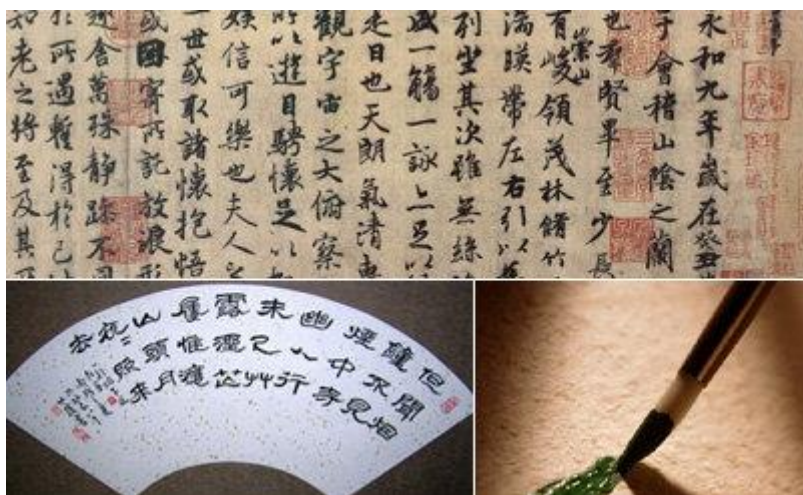 永和九年歲在癸丑
于會稽山陰之蘭
也群賢畢至少長
崇山
有峻領茂林脩竹
湍暎帶左右引以
列坐其次雖無絲
盛一觴一詠亦足以
是日也天朗氣清惠
觀宇宙之大俯察
所以遊目騁懷足以
娛信可樂也夫人之
一世或取諸懷抱悟
或因寄所託放浪形
趣舍萬殊靜躁不同
於所遇暫得於己
知老之將至及其
但聞烟
鐘不見
煙中寺
幽人行
未已艸
露濕芒
屨惟應
山頭月
照來
去